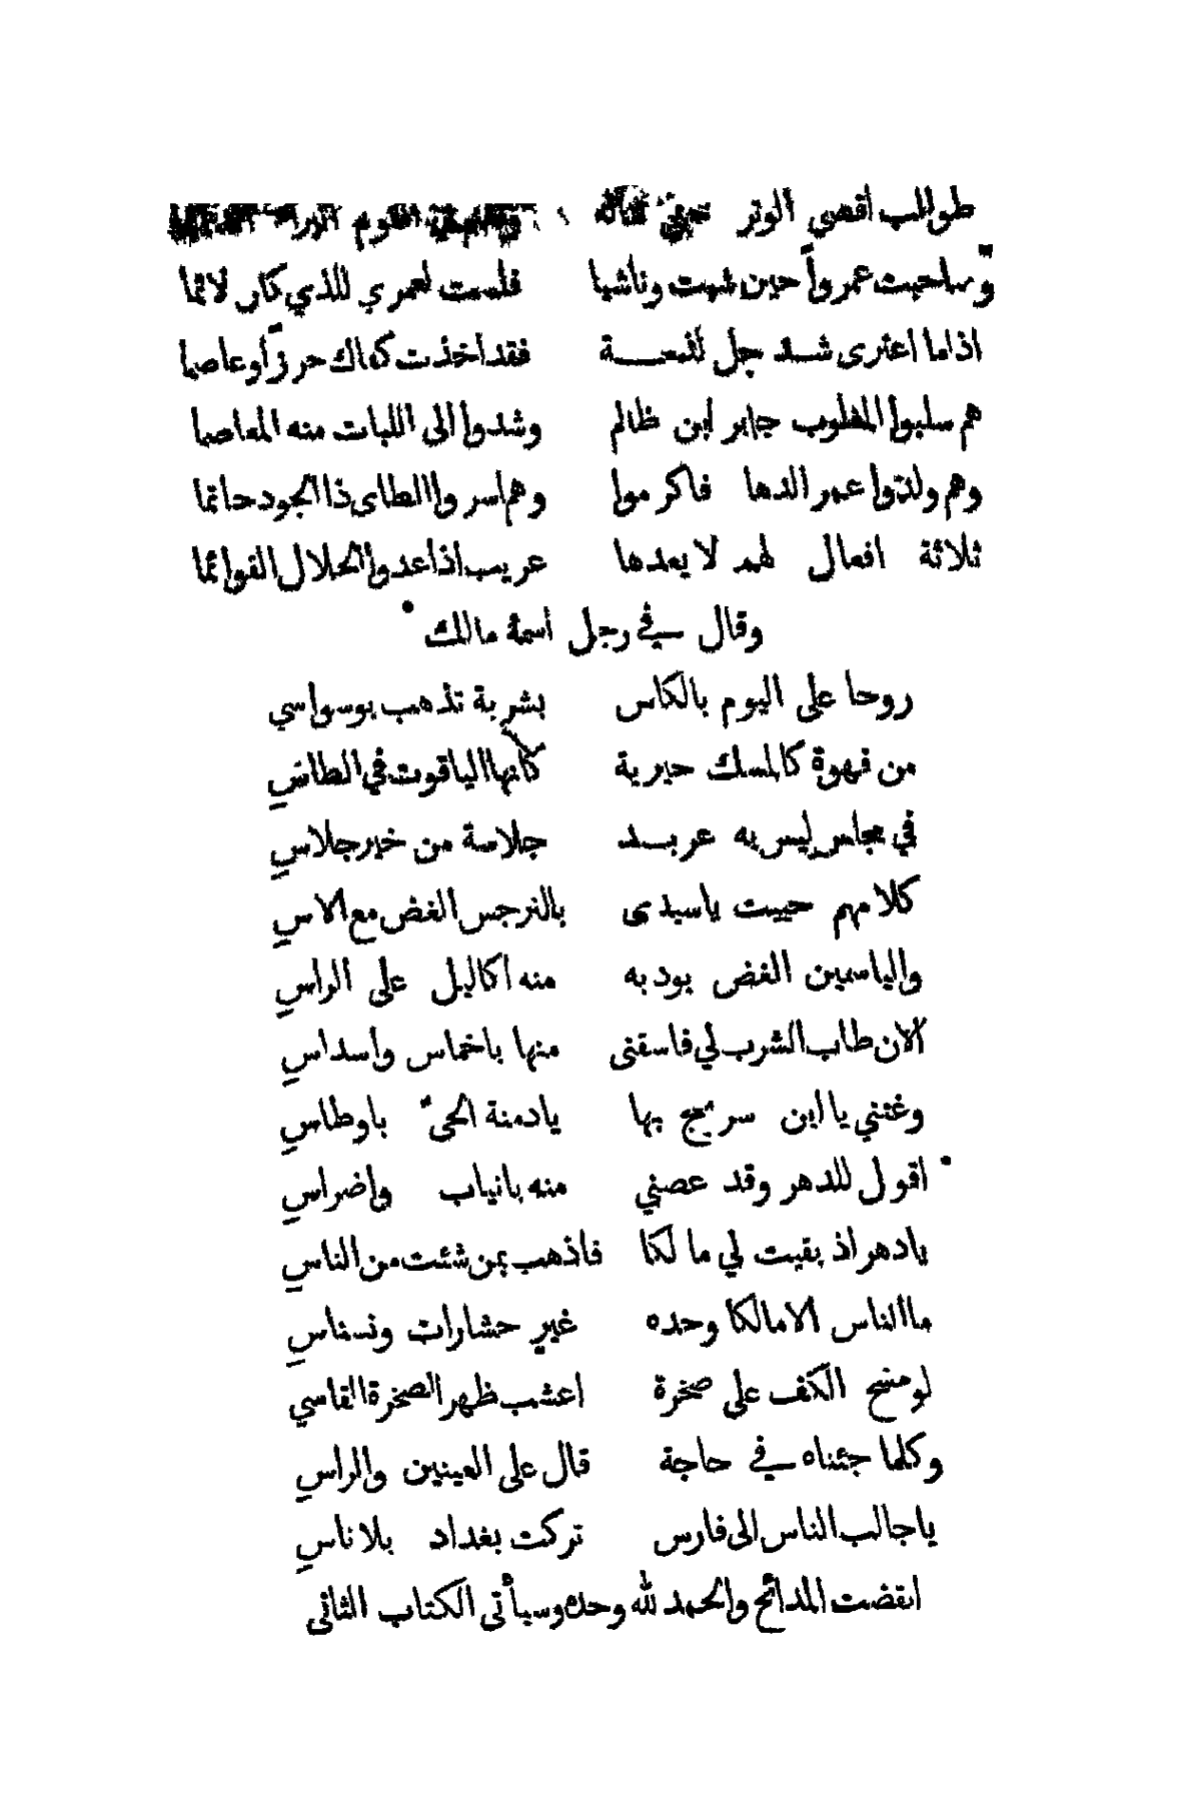 طوالب أقصى الوتر
وصاحبت عمرواً حين شبت وناشيا فلست لعمري للذي كان لائما
اذا ما اعترى شد جل لنعمة فقد اخذت كفاك حرزاً وعاصما
هم سلبوا المغلوب جابر ابن ظالم وشدوا الى اللبات منه المعاصما
وهم ولدتوا عمر الدها فاكرموا وهم اسروا الطاى ذا الجود حاتما
ثلاثة افعال لهم لا يعدها عريب اذا عدوا الحلال القوائما
وقال في رجل اسمه مالك
روحا على اليوم بالكاس بشربة تذهب بوسواسي
من قهوة كالمسك حيرية كانها الياقوت في الطاس
في مجلس ليس به عربد جلاسة من خير جلاس
كلامهم حييت ياسيدى بالنرجس الغض مع الاس
والياسمين الغض يودبه منه اكاليل على الراس
الان طاب الشرب لي فاسقنى منها باخماس واسداس
وغنني يا ابن سريج بها يادمنة الحى باوطاس
اقول للدهر وقد عضني منه بانياب واضراس
يادهر اذ بقيت لي مالكا فاذهب بمن شئت من الناس
ما الناس الا مالكا وحده غير حشارات ونسناس
لو مسح الكف على صخرة اعشب ظهر الصخرة القاسي
وكلما جئناه في حاجة قال على العينين والراس
ياجالب الناس الى فارس تركت بغداد بلا ناس
انقضت المدائح والحمد لله وحده وسيأتى الكتاب الثانى